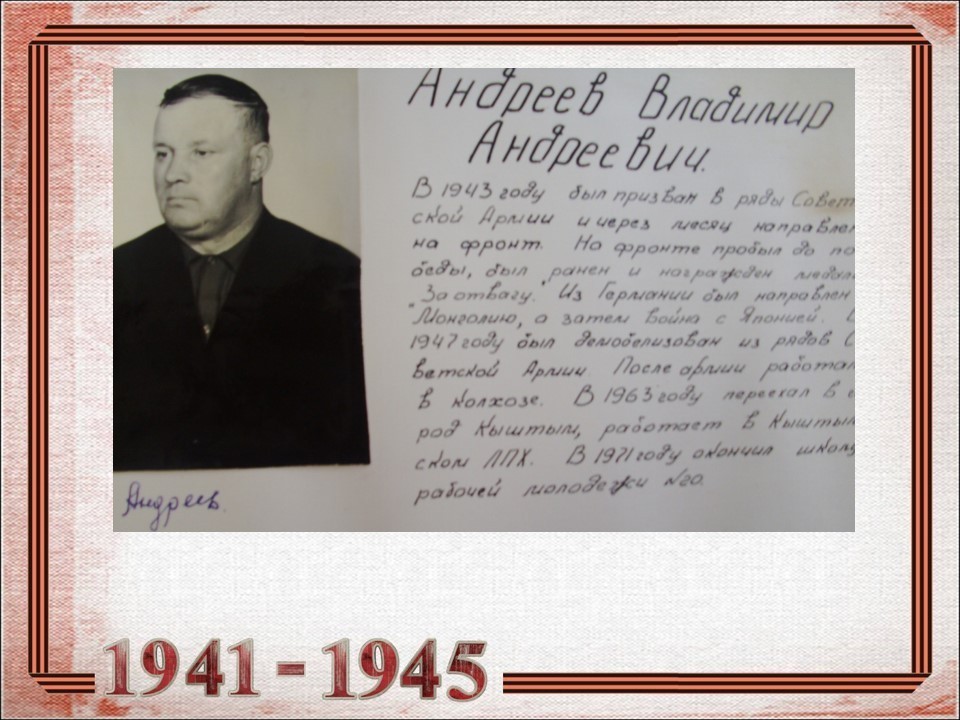 Андреев Владимир
Андреевич.
В 1943 году был призван в ряды Совет
ской Армии и через месяц направлен
на фронт. На фронте пробыл до по
беды, был ранен и награжден медал
"За отвагу." Из Германии был направлен
Монголию, а затем война с Японией.
1947 году был демобелизован из рядов С
ветской Армии. После армии работал
в колхозе. В 1963 году переехал в г
род Кыштым, работает в Кыштым
ском ЛПХ. В 1971 году окончил школу
рабочей молодежи №20.
Андреев.
1941-1945